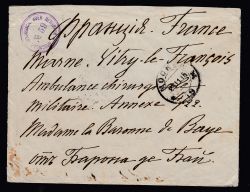 Франція. France
Marne. Vitry-le-François
Ambulance chirurgi
Militaire Annexe
Madame la Baronne de Baye
отъ Барона де Бай